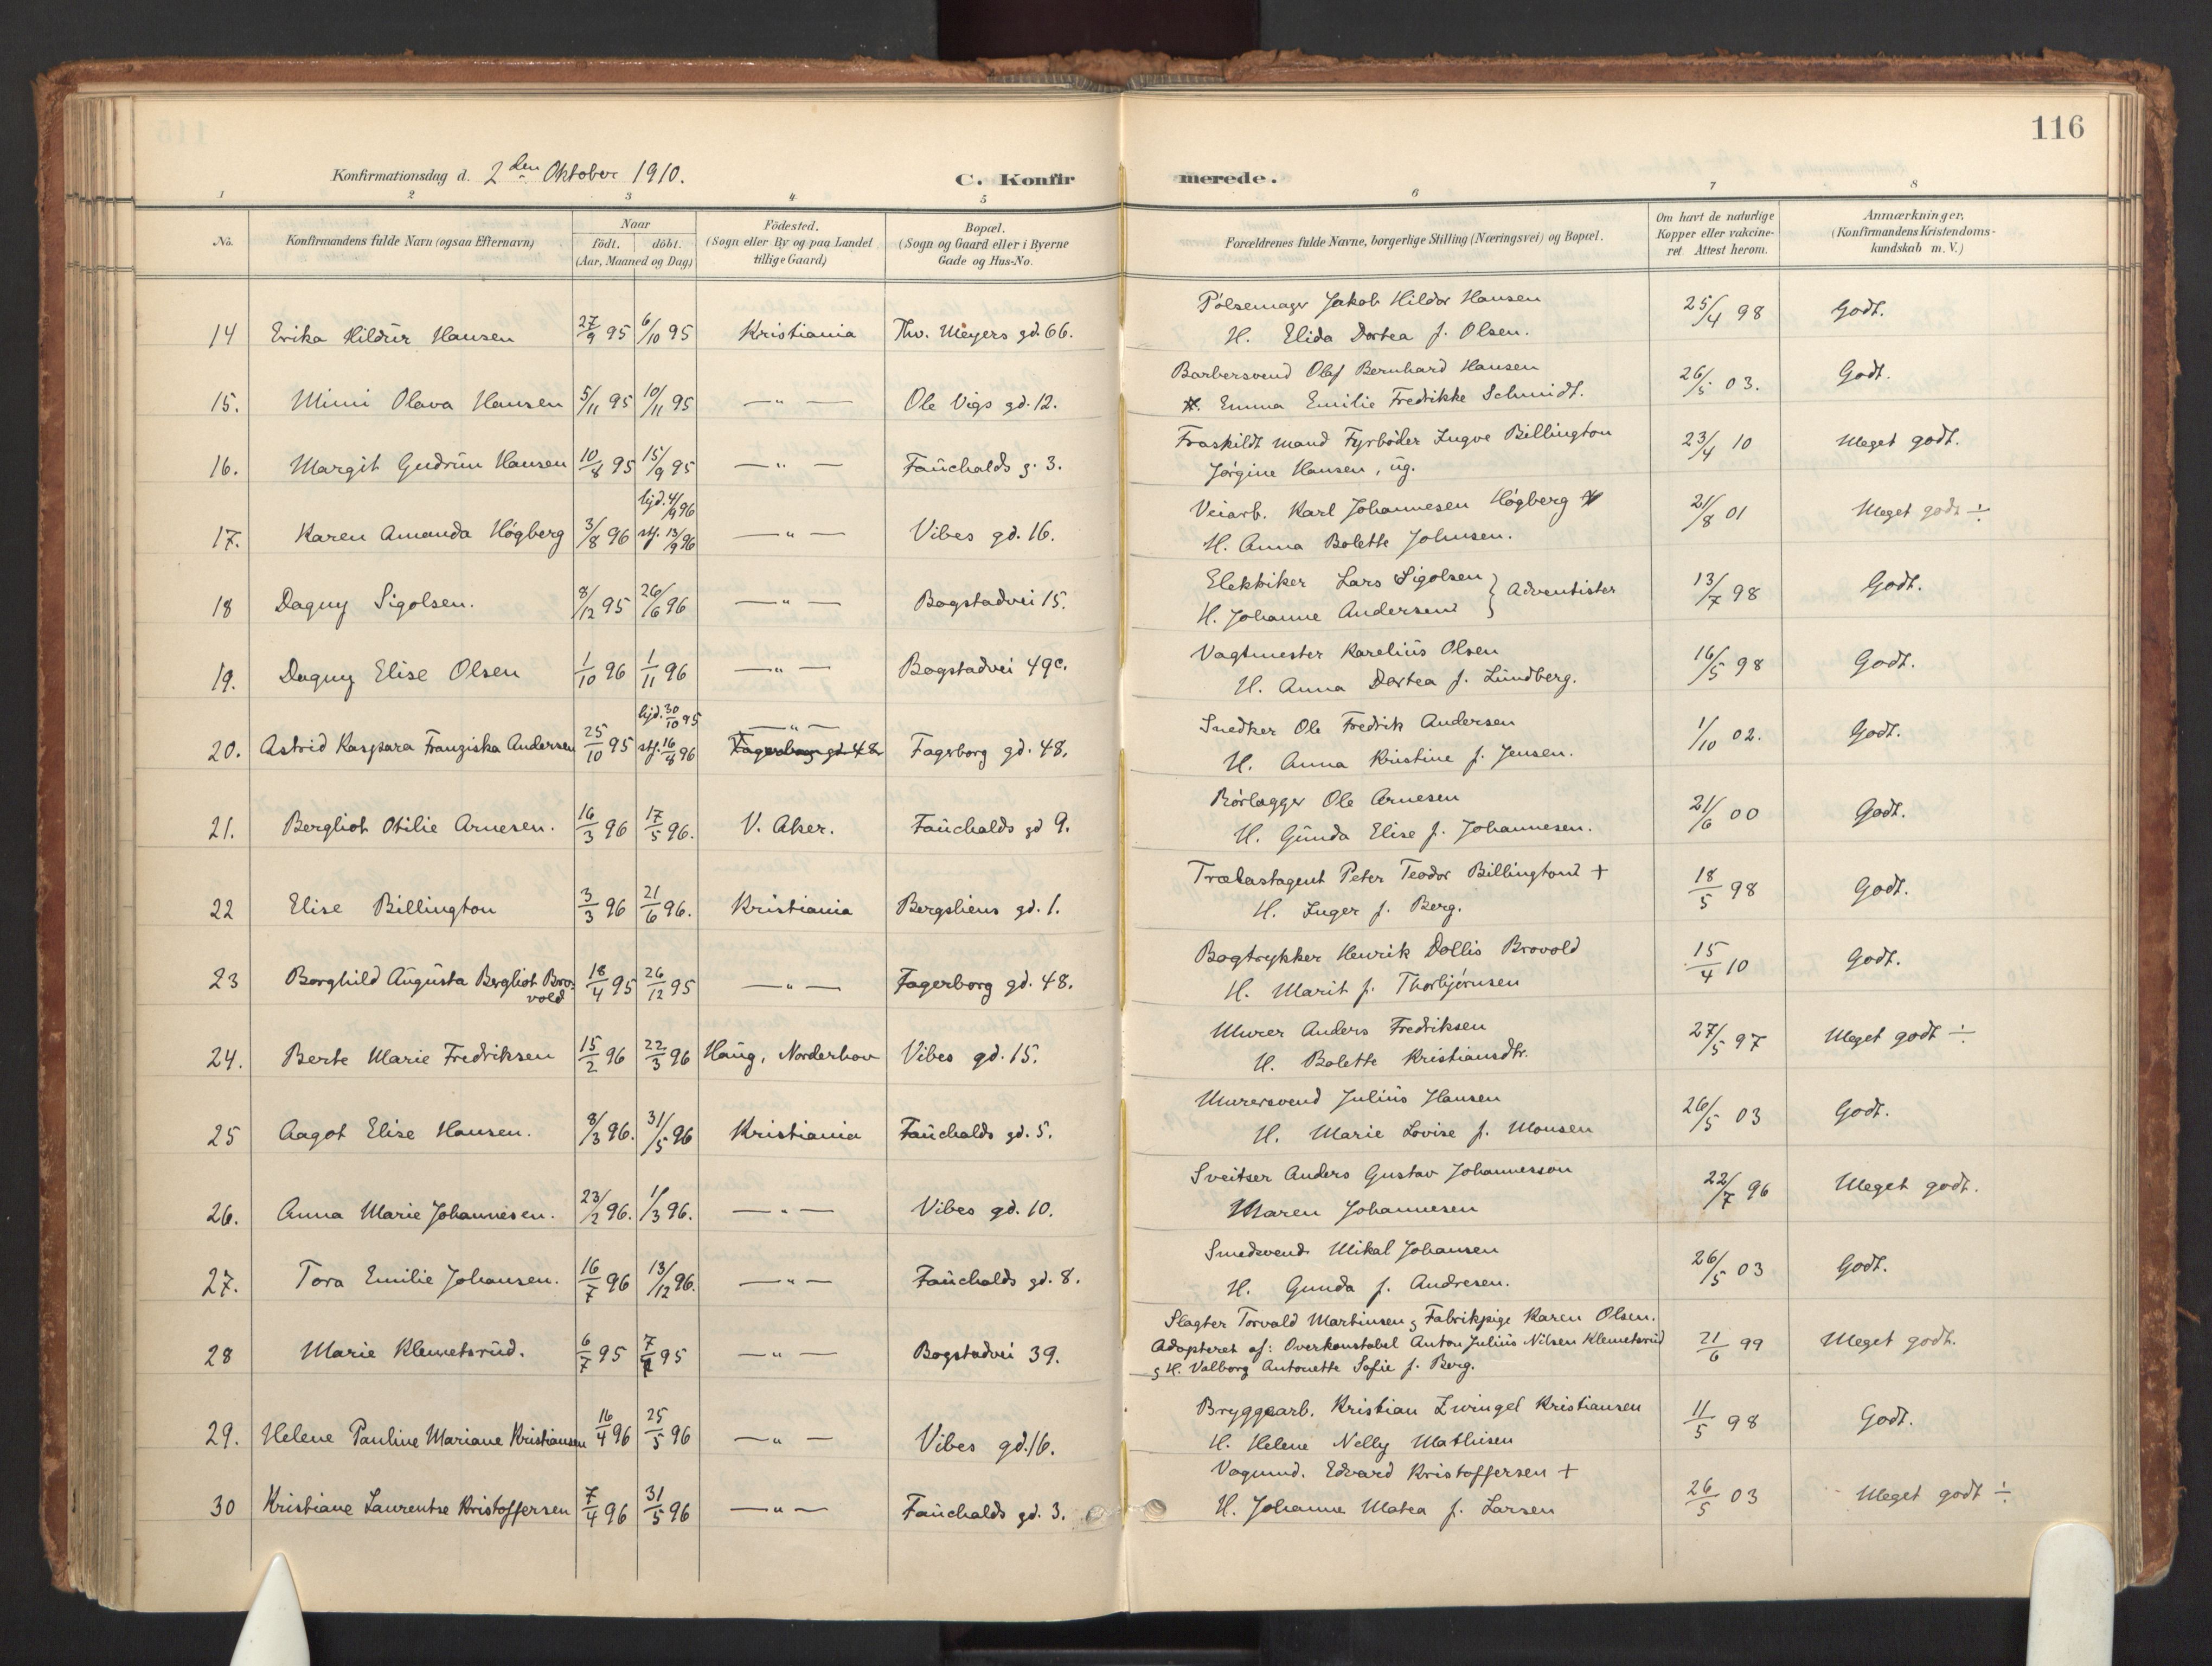 116
Konfirmationsdag d. 2den Oktober 1910. C. Konfirmerede.
1 2 3 4 5 6 7 8
No. Konfirmandens fulde Navn (ogsaa Efternavn) Naar födt. döbt. (Aar, Maaned og Dag) Födested. (Sogn eller By og paa Landet tillige Gaard) Bopæl. (Sogn og Gaard eller i Byerne Gade og Hus-No. Forældrenes fulde Navne, borgerlige Stilling (Næringsvei) og Bopæl. Om havt de naturlige Kopper eller vakcineret. Attest herom. Anmærkninger. (Konfirmandens Kristendomskundskab m. V.)
14 Erika Hildur Hansen 27/9 95 6/10 95 Kristiania Thv. Meyers gd. 66. Pölsemager Jakob Hildor Hansen 25/4 98 Godt.
H. Elida Dortea f. Olsen.
15. Mimi Olava Hansen 5/11 95 10/11 95 —"— Ole Vigs gd. 12. Barbersvend Olaf Bernhard Hansen 26/5 03. Godt.
H. Emma Emilie Fredrikke Schmidt.
16. Margit Gudrun Hansen 10/8 95 15/9 95 —"— Fauchalds g. 3. Fraskildt mand Fyrböder Yngve Billington 23/4 10 Meget godt.
Jørgine Hansen, ug.
17. Karen Amanda Högberg 3/8 96 hjd. 4/9 96 stf. 13/9 96 —"— Vibes gd. 16. Veiarb. Karl Johannesen Högberg 21/8 01 Meget godt ÷
H. Anna Bolette Johnsen.
18 Dagny Sigolsen. 8/12 95 26/6 96 —"— Bogstadvei 15. Elektriker Lars Sigolsen } Adventister 13/7 98 Godt.
H. Johanne Andersen
19. Dagny Elise Olsen 1/10 96 1/11 96 —"— Bogstadvei 49c. Vagtmester Karelius Olsen 16/5 98 Godt.
H. Anna Dortea f. Lundberg.
20. Astrid Kaspara Franziska Andersen 25/10 95 hjd. 30/10 95 stf. 16/8 96 —"— Fagerborg gd 48 Fagrborg gd. 48. Snedker Ole Fredrik Andersen 1/10 02. Godt.
H. Anna Kristine f. Jensen.
21. Bergliot Otilie Arnesen. 16/3 96 17/5 96. V. Aker. Fauchalds gd 9. Rörlægger Ole Arnesen 21/6 00 Godt.
H. Gunda Elise f. Johannesen.
22 Elise Billington 3/3 96 21/6 96. Kristiania Bergsliens gd. 1. Trælastagent Peter Teodor Billington + 18/5 98 Godt.
H. Inger f. Berg.
23 Borghild Augusta Bergliot Brovold 18/4 95 26/12 95 —"— Fagerborg gd. 48. Bogtrykker Henrik Dollis Brovold 15/4 10 Godt.
H. Marit f. Thorbjørnsen
24. Berte Marie Fredriksen 15/2 96 22/3 96 Haug, Norderhov Vibes gd. 15. Murer Anders Fredriksen 27/5 97 Meget godt ÷
H. Bolette Kristiansdtr.
25 Aagot Elise Hansen. 8/3 96. 31/5 96 Kristiania Fauchalds gd. 5. Murersvend Julius Hansen 26/5 03 Godt.
H. Marie Lovise f. Monsen
26. Anna Marie Johannesen. 23/2 96. 1/3 96. —"— Vibes gd. 10. Sveitser Anders Gustav Johannesson 22/7 96 Meget godt.
Maren Johannesen
27. Tora Emilie Johansen. 16/7 96 13/12 96. —"— Fauchalds gd. 8. Smedsvend Mikal Johansen 26/5 03 Godt.
H. Gunda f. Andresen.
28 Marie Klemetsrud. 6/7 95 7/9 95 —"— Bogstadvei 39. Slagter Torvald Martinsen & Fabrikpige Karen Olsen. 21/6 99 Meget godt.
Adopteret af: Overkonstabel Anton Julius Nilsen Klemetsrud
& H. Valborg Antonette Sofie f. Berg.
29. Helene Pauline Mariane Kristiansen 16/4 96 25/5 96 —"— Vibes gd. 16. Bryggearb. Kristian Zwingel Kristiansen 11/5 98 Godt.
H. Helene Nelly Mathisen
30 Kristiane Laurentse Kristoffersen 7/4 96 31/5 96 —"— Fauchalds gd. 3. Vognmd. Edvard Kristoffersen + 26/5 03 Meget godt ÷
H. Johanne Matea f. Larsen